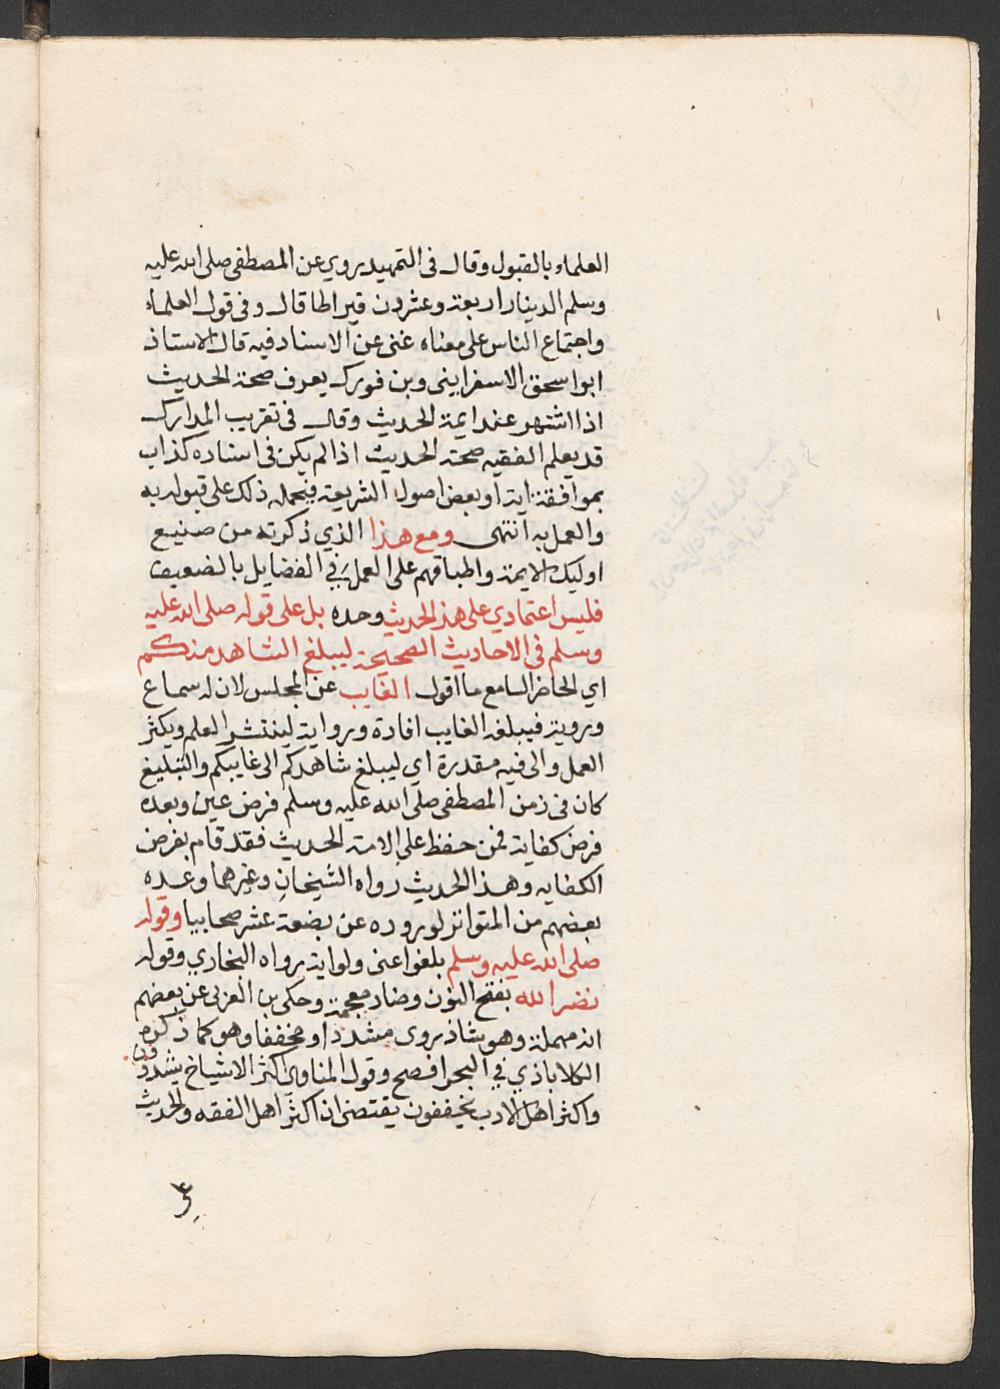 العلماء بالقبول وقال فى التمهيد روي عن المصطفى صلى الله عليه
وسلم الدينار اربعة وعشرون قيراطا قال وفى قول العلماء
واجتماع الناس على معناه غنى عن الاسناد فيه قال الاستاذ
ابو اسحق الاسفراينى وبن فورك يعرف صحة الحديث
اذا اشتهر عند ايمة الحديث وقال فى تقريب المدارك
قد يعلم الفقيه صحة الحديث اذا لم يكن فى اسناده كذاب
بموافقة اية او بعض اصول الشريعة فيحمله ذلك على قبوله به
والعمل به انتهى ومع هذا الذي ذكرته من صنيع
اوليك الايمة واطباقهم على العمل في الفضايل بالضعيف
فليس اعتمادي على هذا الحديث وحده بل على قوله صلى الله عليه
وسلم فى الاحاديث الصحيحة ليبلغ الشاهد منكم
اي الحاضر السامع ما اقول الغايب عن المجلس لان له سماع
وروية فيبلغه الغايب افادة ورواية لينتشر العلم ويكثر
العمل والى فيه مقدرة اي ليبلغ شاهدكم الى غايبكم والتبليغ
كان فى زمن المصطفى صلى الله عليه وسلم فرض عين وبعده
فرض كفاية فمن حفظ على الامة الحديث فقد قام بفرض
الكفايه وهذا الحديث رواه الشيخان وغيرهما وعده
بعضهم من المتواتر لوروده عن بضعة عشر صحابيا وقوله
صلى الله عليه وسلم بلغوا عنى ولو اية رواه البخاري وقوله
نضر الله بفتح النون وضاد معجمة وحكى بن العربى عن بعضهم
انه مهملة وهو شاذ روى مشددا ومخففا وهو كما ذكره
الكلاباذي في البحر افصح وقول المناوى اكثر الاشياخ يشددون
واكثر اهل الادب يخففون يقتضى ان اكثر اهل الفقه والحديث